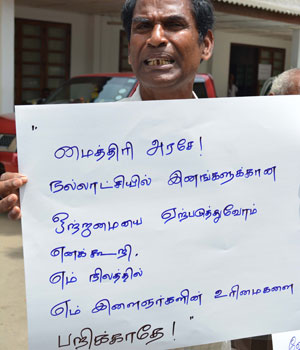 "
மைத்திரி அரசே!
நல்லாட்சியில் இனங்களுக்கான
ஒற்றுமையை ஏற்படுத்துவோம்
எனக் கூறி.
எம் நிலத்தில்
எம் இளைஞர்களின் உரிமைகளை
பறிக்காதே! "